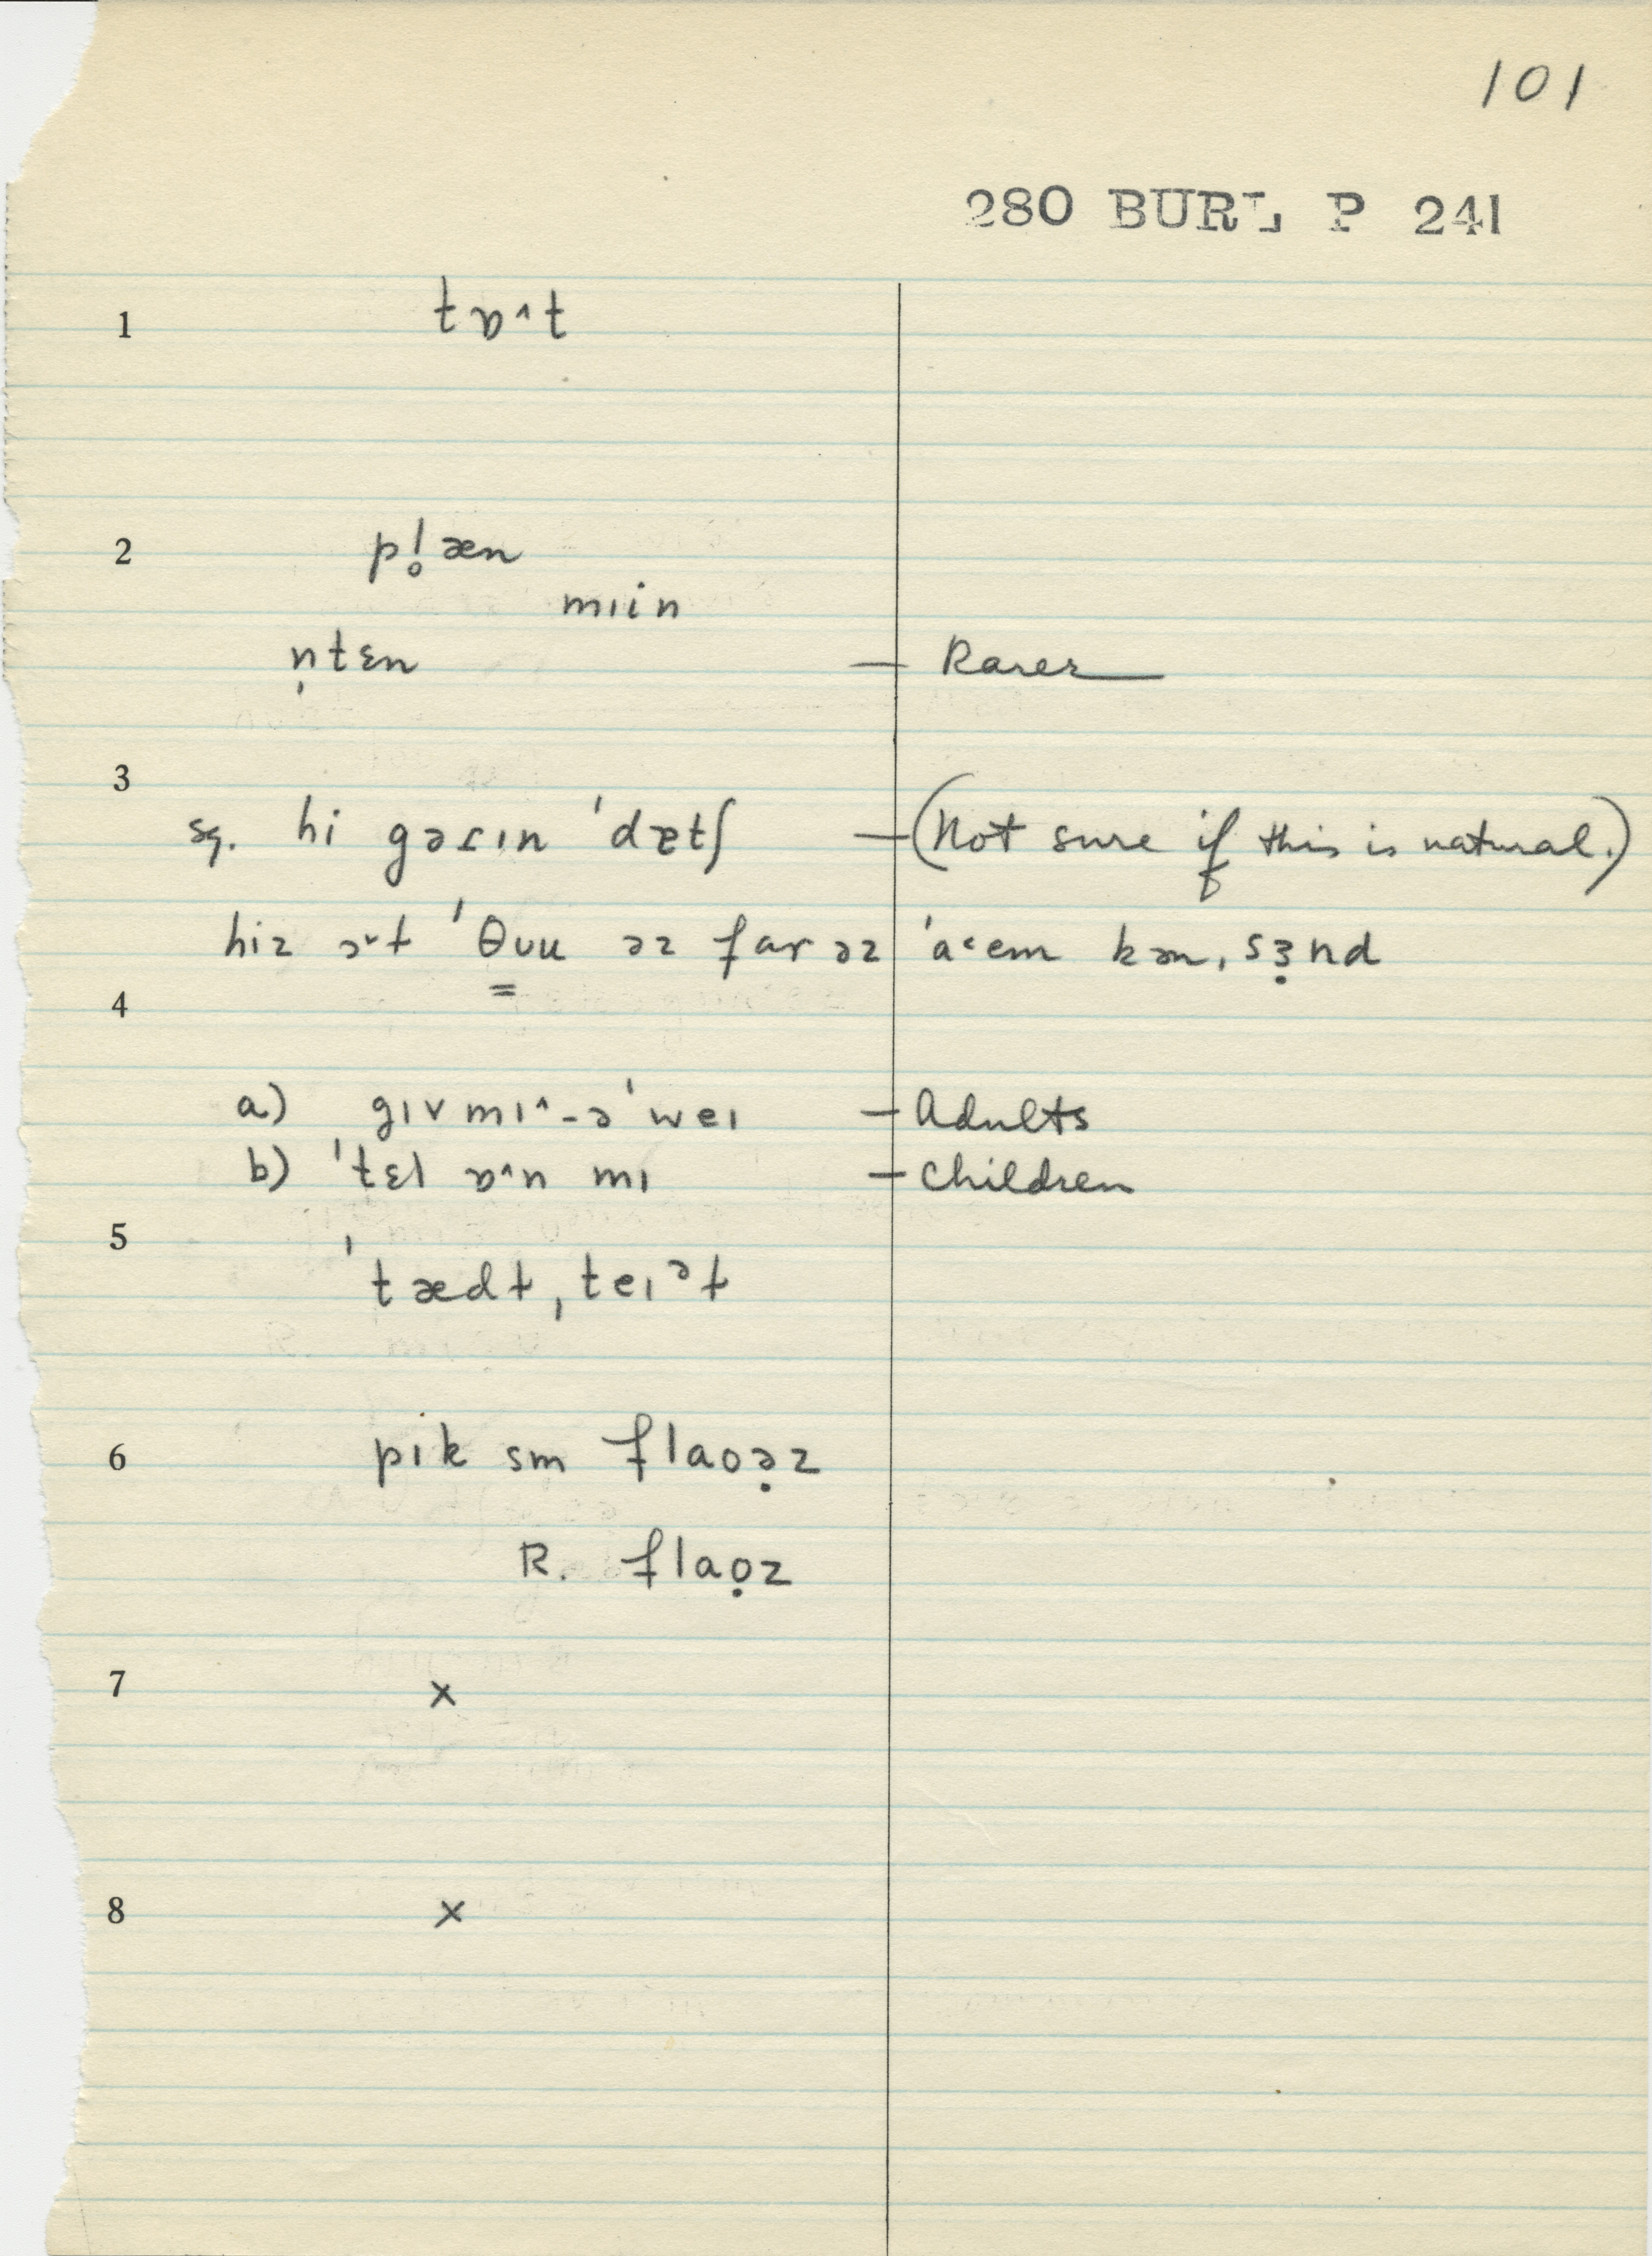 101
280 BURL P 241
1 tɒ˄t
2 pl̥æn
mɪin
n̩tɛn — Rarer
3
sq. hi gəɾɪn 'dætʃ — (Not sure if this is natural.)
hiz ə˅t 'θuu əz far əz 'a˂em kən,sɜ̣nd
4
a) gɪvmɪ˄-ə'weɪ — Adults
b) 'tɛl ɒ˄n mɪ — Children
5
'tædɫ,teɪᵊɫ
6 pɪk sm flaoə̣z
R. flaọz
7 x
8 x